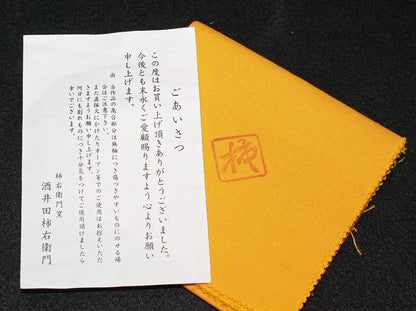 ごあいさつ
この度はお買い上げ頂きありがとうございました。
今後とも末永くご愛顧賜りますよう心よりお願い
申し上げます。
尚 当作品の高台部分は無釉につき傷つきやすいものにのせる場
合はご注意下さい。
また直接火にかけたりオーブン等でのご使用はお控えいただ
きますようお願い申し上げます。
何分にも割れものにつき十分気をつけてご使用頂けましたら
幸いでございます。
柿右衛門窯
酒井田柿右衛門
柿